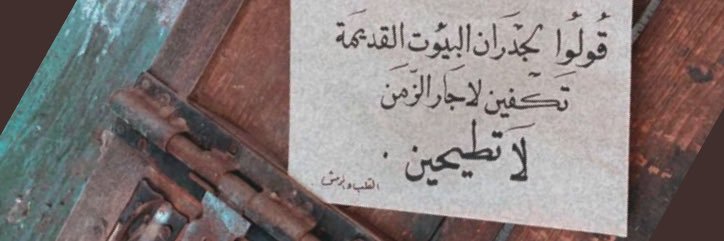 قُولُوا لجُدَران البيُوت القديمَة
تَكْفين لا جَار الزّمَن
لَا تطيحين .
القلب و